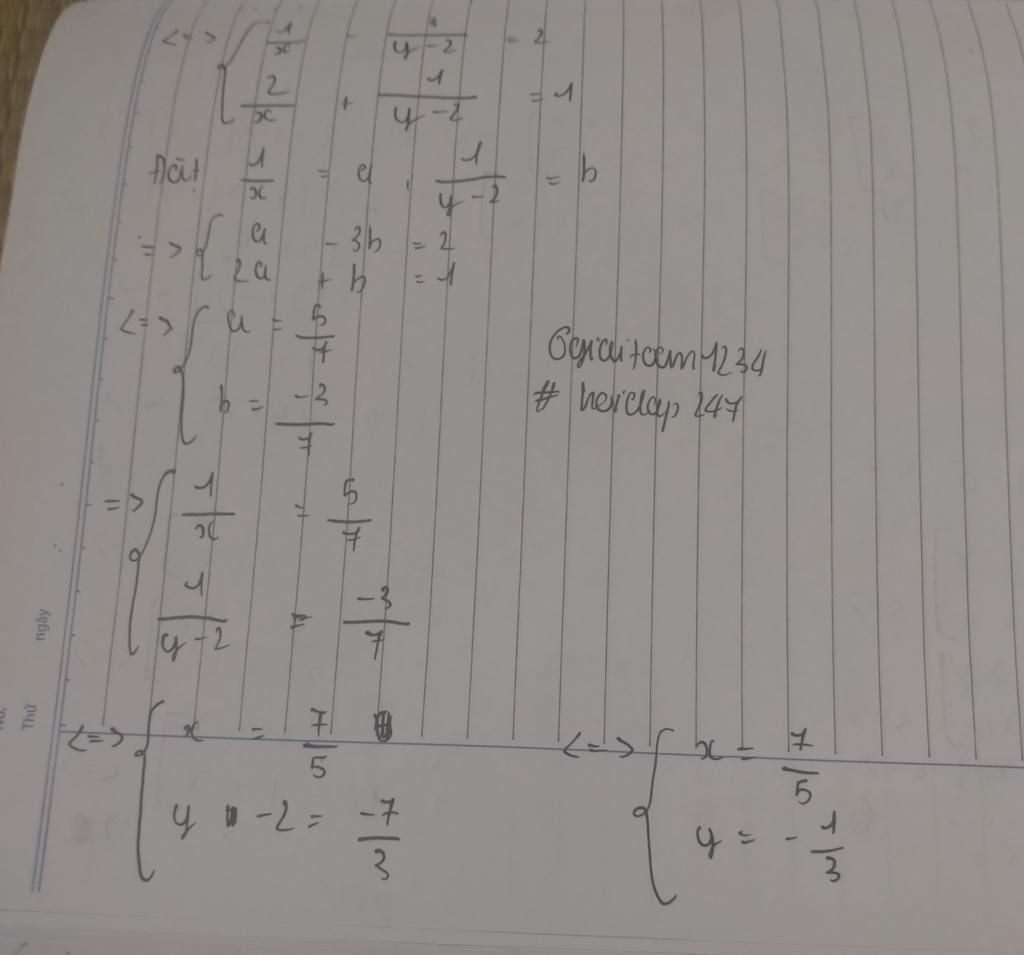 <=> { 1/x - /y-2 = 2
2/x + 1/y-2 = 1
Đặt 1/x = a, 1/y-2 = b
=> { a - 3b = 2
2a + b = 1
<=> { a = 5/7
b = -3/7
Ogiaitoam1234
# heiclap 247
=> { 1/x = 5/7
1/y-2 = -3/7
<=> { x = 7/5
y -2 = -7/3
<=> { x = 7/5
y = -1/3
ngày
Thứ
No.